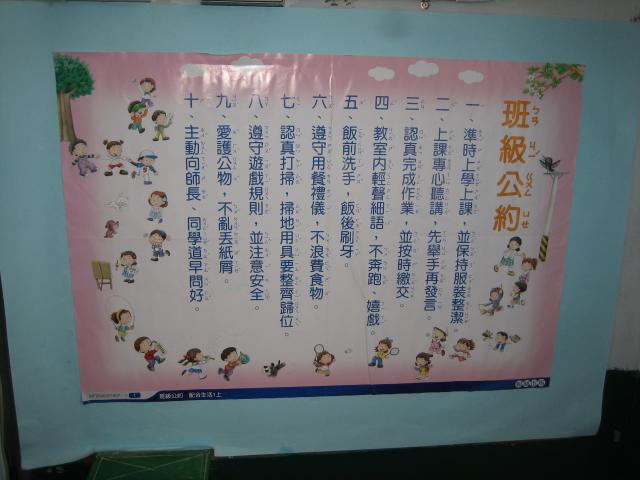 班級公約
一、準時上學上課，並保持服裝整潔。
二、上課專心聽講，先舉手再發言。
三、認真完成作業，並按時繳交。
四、教室內輕聲細語，不奔跑、嬉戲。
五、飯前洗手，飯後刷牙。
六、遵守用餐禮儀，不浪費食物。
七、認真打掃，掃地用具要整齊歸位。
八、遵守遊戲規則，並注意安全。
九、愛護公物，不亂丟紙屑。
十、主動向師長、同學道早問好。
班級公約 配合生活1上